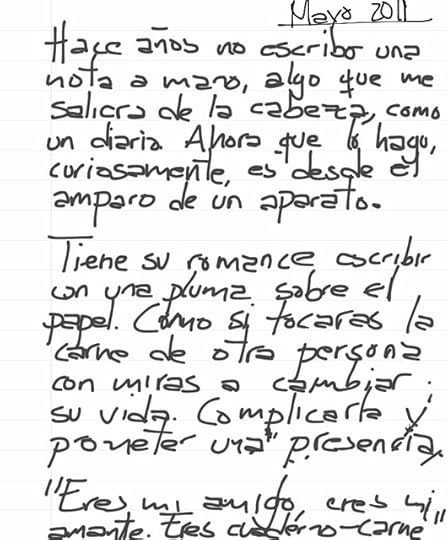 Mayo 2011
Hace años no escribo una
nota a mano, algo que me
saliera de la cabeza, como
un diario. Ahora que lo hago,
curiosamente, es desde el
amparo de un aparato.
Tiene su romance escribir
con una pluma sobre el
papel. Como si tocaras la
carne de otra persona
con miras a cambiar
su vida. Complicarla y
prometer una presencia.
"Eres mi amigo, eres mi
amante. Eres cuaderno-carne"